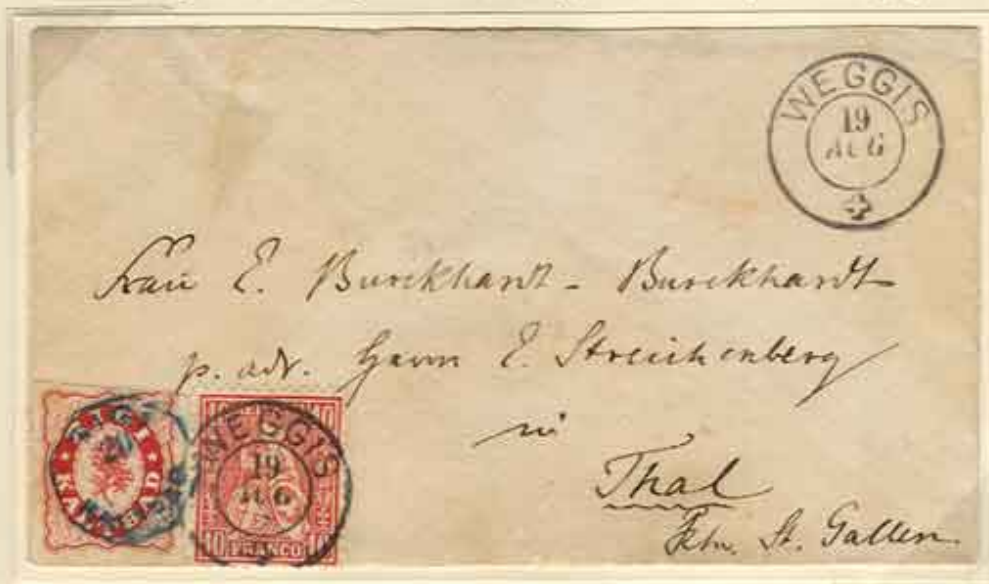 WEGGIS
19
AUG
Frau E. Burckhardt - Burckhardt
p. adr. Herrn E. Streichenberg
in
Thal
Ktn. St. Gallen.
RIGI
KALTBAD
WEGGIS
19
AUG
10
10
10 FRANCO 10